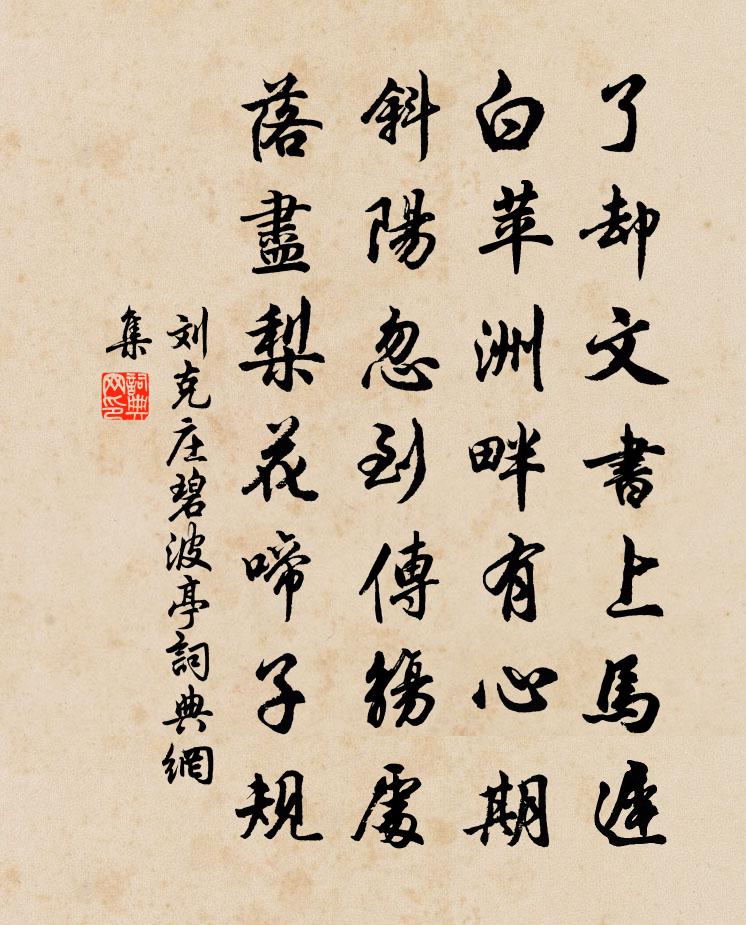 了却文書上馬遲
白苹洲畔有心期
斜陽忽到傳觴處
落盡梨花啼子規
刘克庄碧波亭詞典網
集
詞典
网印